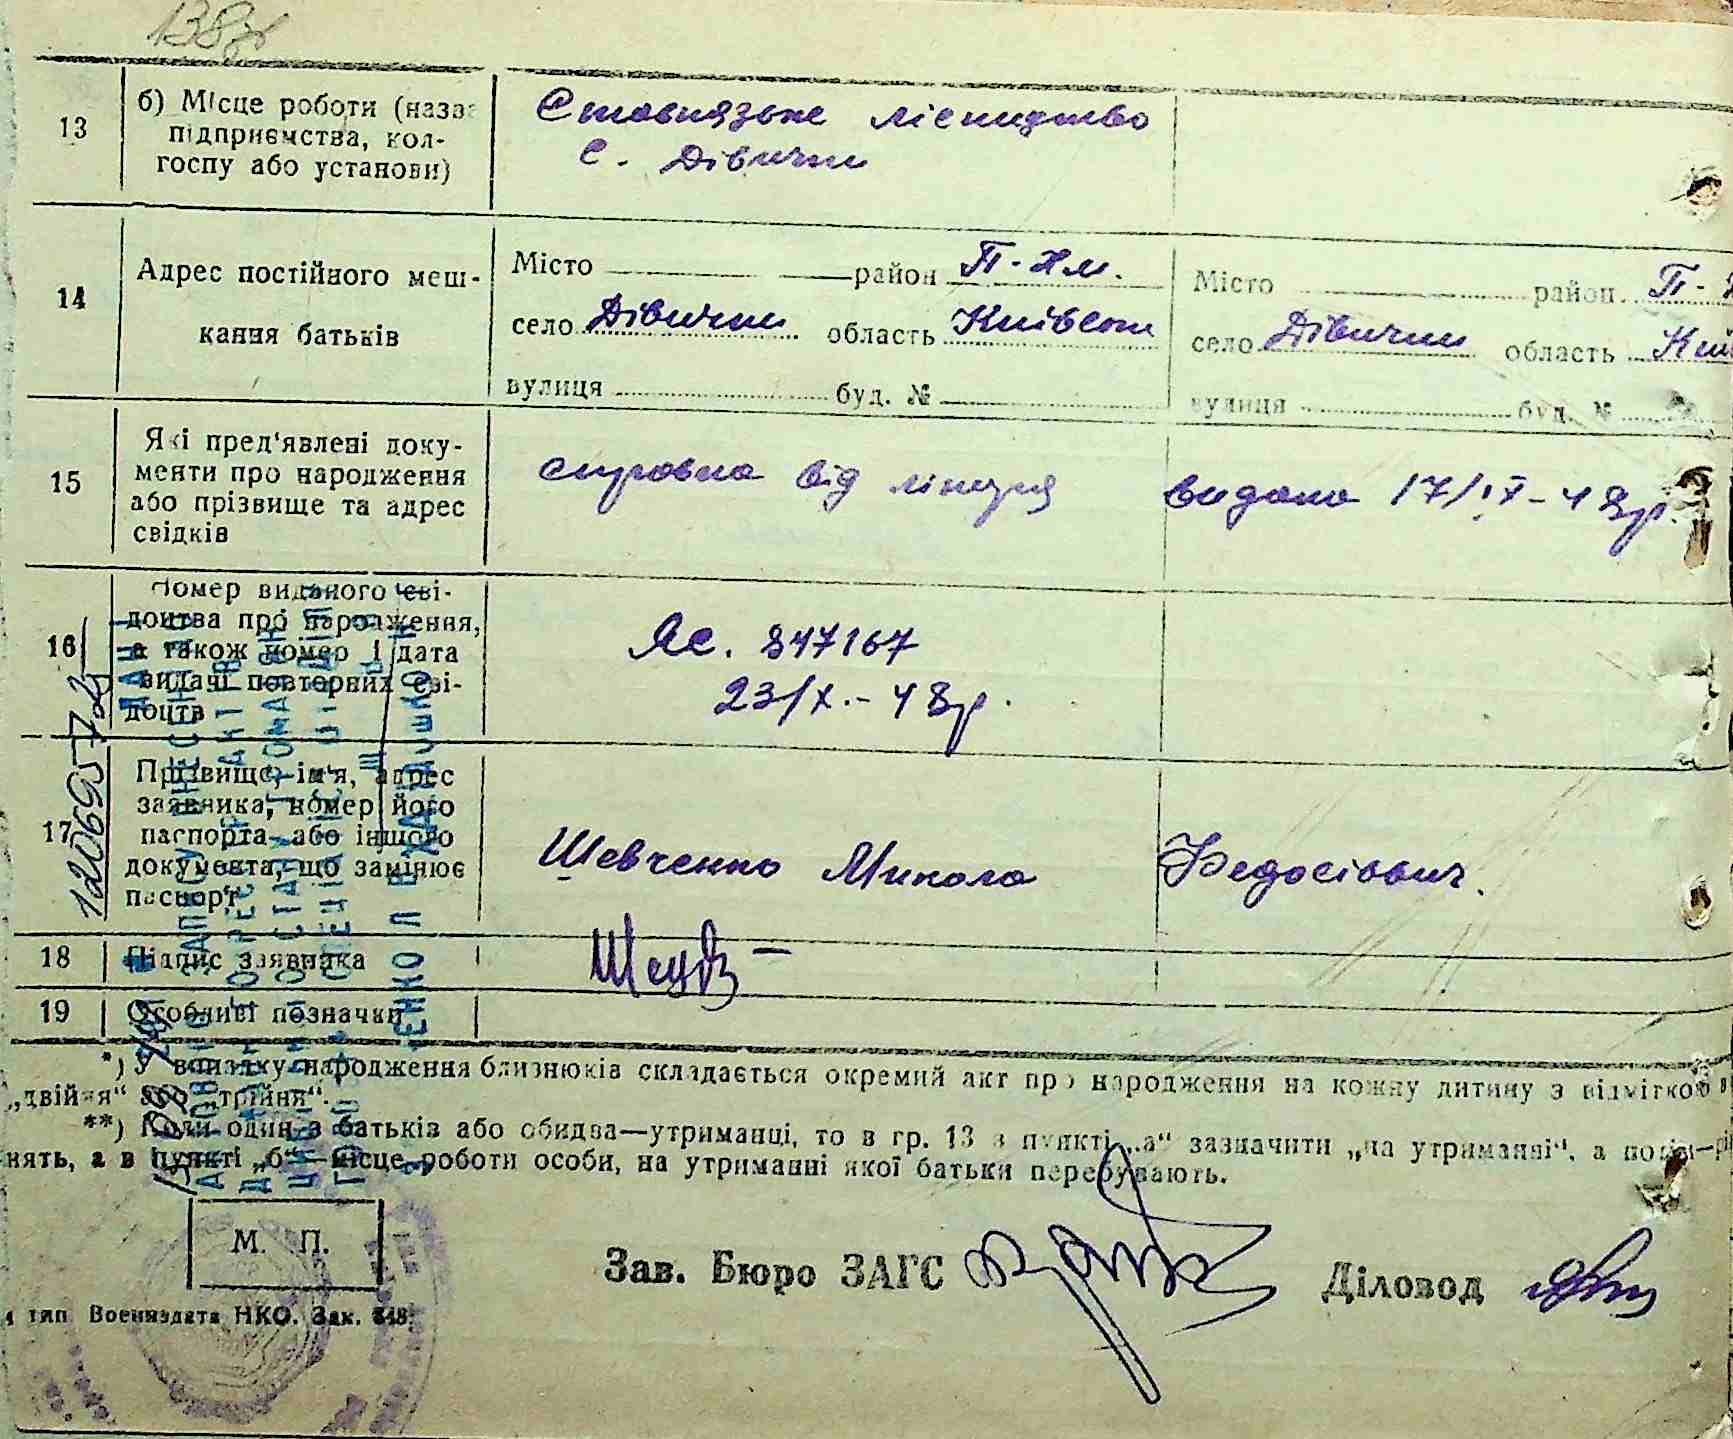 138
13 б) Місце роботи (назва підприємства, колгоспу або установи)
Стовпязьке лісництво
с. Дівички
14 Адрес постійного мешкання батьків
Місто район П-Хм.
село Дівички область Київськ
вулиця буд. №
Місто район П-Х
село Дівички область Киї
вулиця буд. №
15 Які пред'явлені документи про народження або прізвище та адрес свідків
справка від лікаря видана 17/IX-48р.
16 Номер виданого свідоцтва про народження, а також номер і дата видачі повторних свідоцтв
ЯС. 847167
23/X.-48р.
17 Прізвище, ім'я, адрес заявника, номер його паспорта або іншого документа, що замінює паспорт
Шевченко Микола Федосієвич.
18 Підпис заявника
19 Особливі позначки
*) У випадку народження близнюків складається окремий акт про народження на кожну дитину з відміткою
„двійня“ або „трійня“.
**) Коли один з батьків або обидва—утриманці, то в гр. 13 в пункті „а“ зазначити „на утриманні“, а
нять, а в пункті „б“—місце роботи особи, на утриманні якої батьки перебувають.
М. П.
Зав. Бюро ЗАГС Діловод
тип Воениздата НКО. Зак.